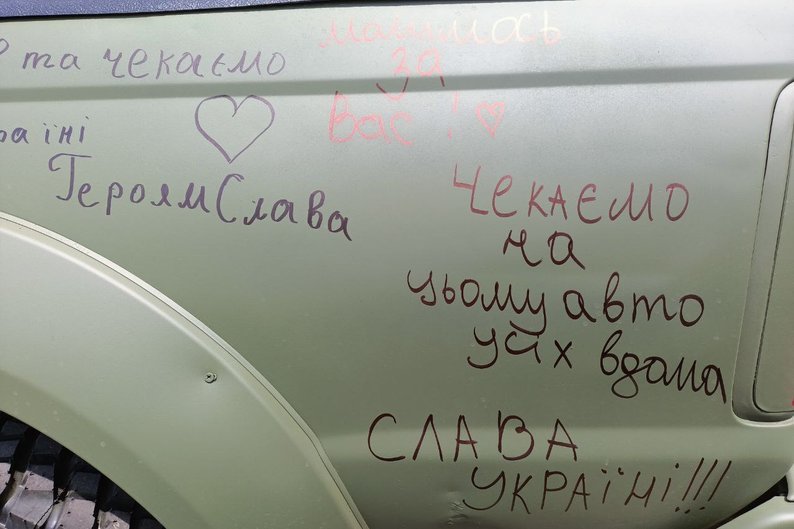 та чекаємо
їні
Героям Слава
молимось
за
Вас!
Чекаємо
на
цьому авто
усіх вдома
СЛАВА
УКРАЇНІ!!!